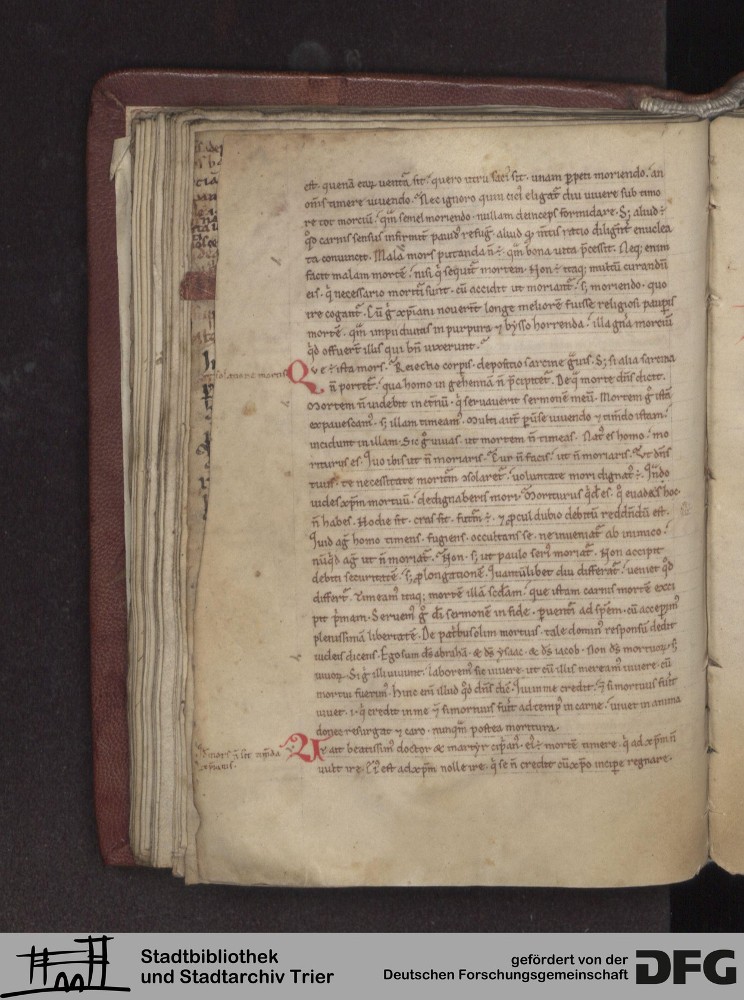 est. quenā eaꝝ ventᷓa sit. quero utrū saci sit. unam ꝑpeti moriendo. an
om̄s timere vivendo. Nec ignoro quā citi eligat̄ diu vivere sub timo
re tot mortiū. qm̄ semel moriendo nullam deinceps formidare. S; aliud ÷
qd̄ carnis sensus infirmit̄ pavid' refuḡ. aliud qd̄ m̄tis ratio diligent̄ enuclea
ta convincit. Mala mors putanda n̄ ÷. qm̄ bona vita p̄cessit. Neq; enim
facit malam mortē. nisi qd̄ sequit̄ mortem. Non ÷ itaq; multū curandū
eis. q̄ necessario morituri sunt. cū accidit ut moriant̄. s; moriendo. quo
ire cogant̄. Cū g̊ xp̄iani noverint longe meliorē fuisse religiosi pauperis
mortē. qm̄ impii divitis in purpura ⁊ bysso horrenda. illa gn̄a mortiū
qd̄ offuert̄ illis qui bn̄ vixerunt.
Que ÷ ista mors. Relectio corpis. depositio sarcine gravis. S; si alia sarcina
n̄ portet̄. qua homo in gehennā n̄ p̄cipitet̄. De q̄ morte dn̄s dicit.
Mortem n̄ videbit in et̄nū. q̄ servaverit sermonē meū. Mortem g̊ istā
expavescam'. s; illam timeam'. Multi aut̄ pvse vivendo ⁊ timēdo istam.
incidunt in illam. Sic g̊ vivas. ut mortem n̄ timeas. Nat' es homo. mo
riturus es. Quo ibis ut n̄ moriaris. Cur n̄ facis. ut n̄ moriaris. Ut dn̄s
tuus. te necessitate moritūm ↄsolaret̄. voluntate mori dignat' ÷. Qn̄do
vides xp̄m mortuū. dedignaberis mori. Moriturus qd̄ es. q̊ evadas hoc.
n̄ habes. Hodie sit. cras sit. futm̄ ÷. ⁊ ꝓcul dubio debitū reddēdū est.
Quid aḡ homo timens. fugiens. occultans se. ne inveniat̄ ab inimico.
nūqd̄ aḡ ut n̄ moriat̄. Non. s; ut paulo seri' moriat̄. Non accipit
debiti securitatē. s; ꝓlongationē. Quantūlibet diu differat̄. veniet qd̄
differt̄. Timeam' itaq; mortē illā scd̄am. que istam carnis mortē exci
pit p̄mam. Servem' g̊ dī sermonē in fide. ꝑventi ad spēm. cū acceperim'
plenissimā libertatē. De patribus olim mortuis. tale domin' responsū dedit
iudeis dicens. Ego sum ds̄ abrahā. & ds̄ ysaac. & ds̄ iacob. Non ds̄ mortuoꝝ. s;
vivoꝝ. Si g̊ illi vivunt. laborem' sic vivere. ut cū illis meream' vivere. cū
mortui fuerim'. Hinc em̄ illud qd̄ dn̄s dic̄. Qui in me credit. ⁊ si mortuus fuit
vivet. i. q̄ credit in me ⁊ si mortuus fuit ad temp' in carne. vivet in anima
donec resurgat ⁊ caro. nunqm̄ postea moritura.
Ut ait beatissim' doctor & martyr cip̄an'. ei' ÷ mortē timere. q̄ ad xp̄m n̄
vult ire. Ei' est ad xp̄m nolle ire. q̄ se n̄ credit cū xp̄o incipe regnare.
ↄsolatione mortis
qd̄ mors n̄ sit tim̄da
Stadtbibliothek
und Stadtarchiv Trier
gefördert von der
Deutschen Forschungsgemeinschaft
DFG